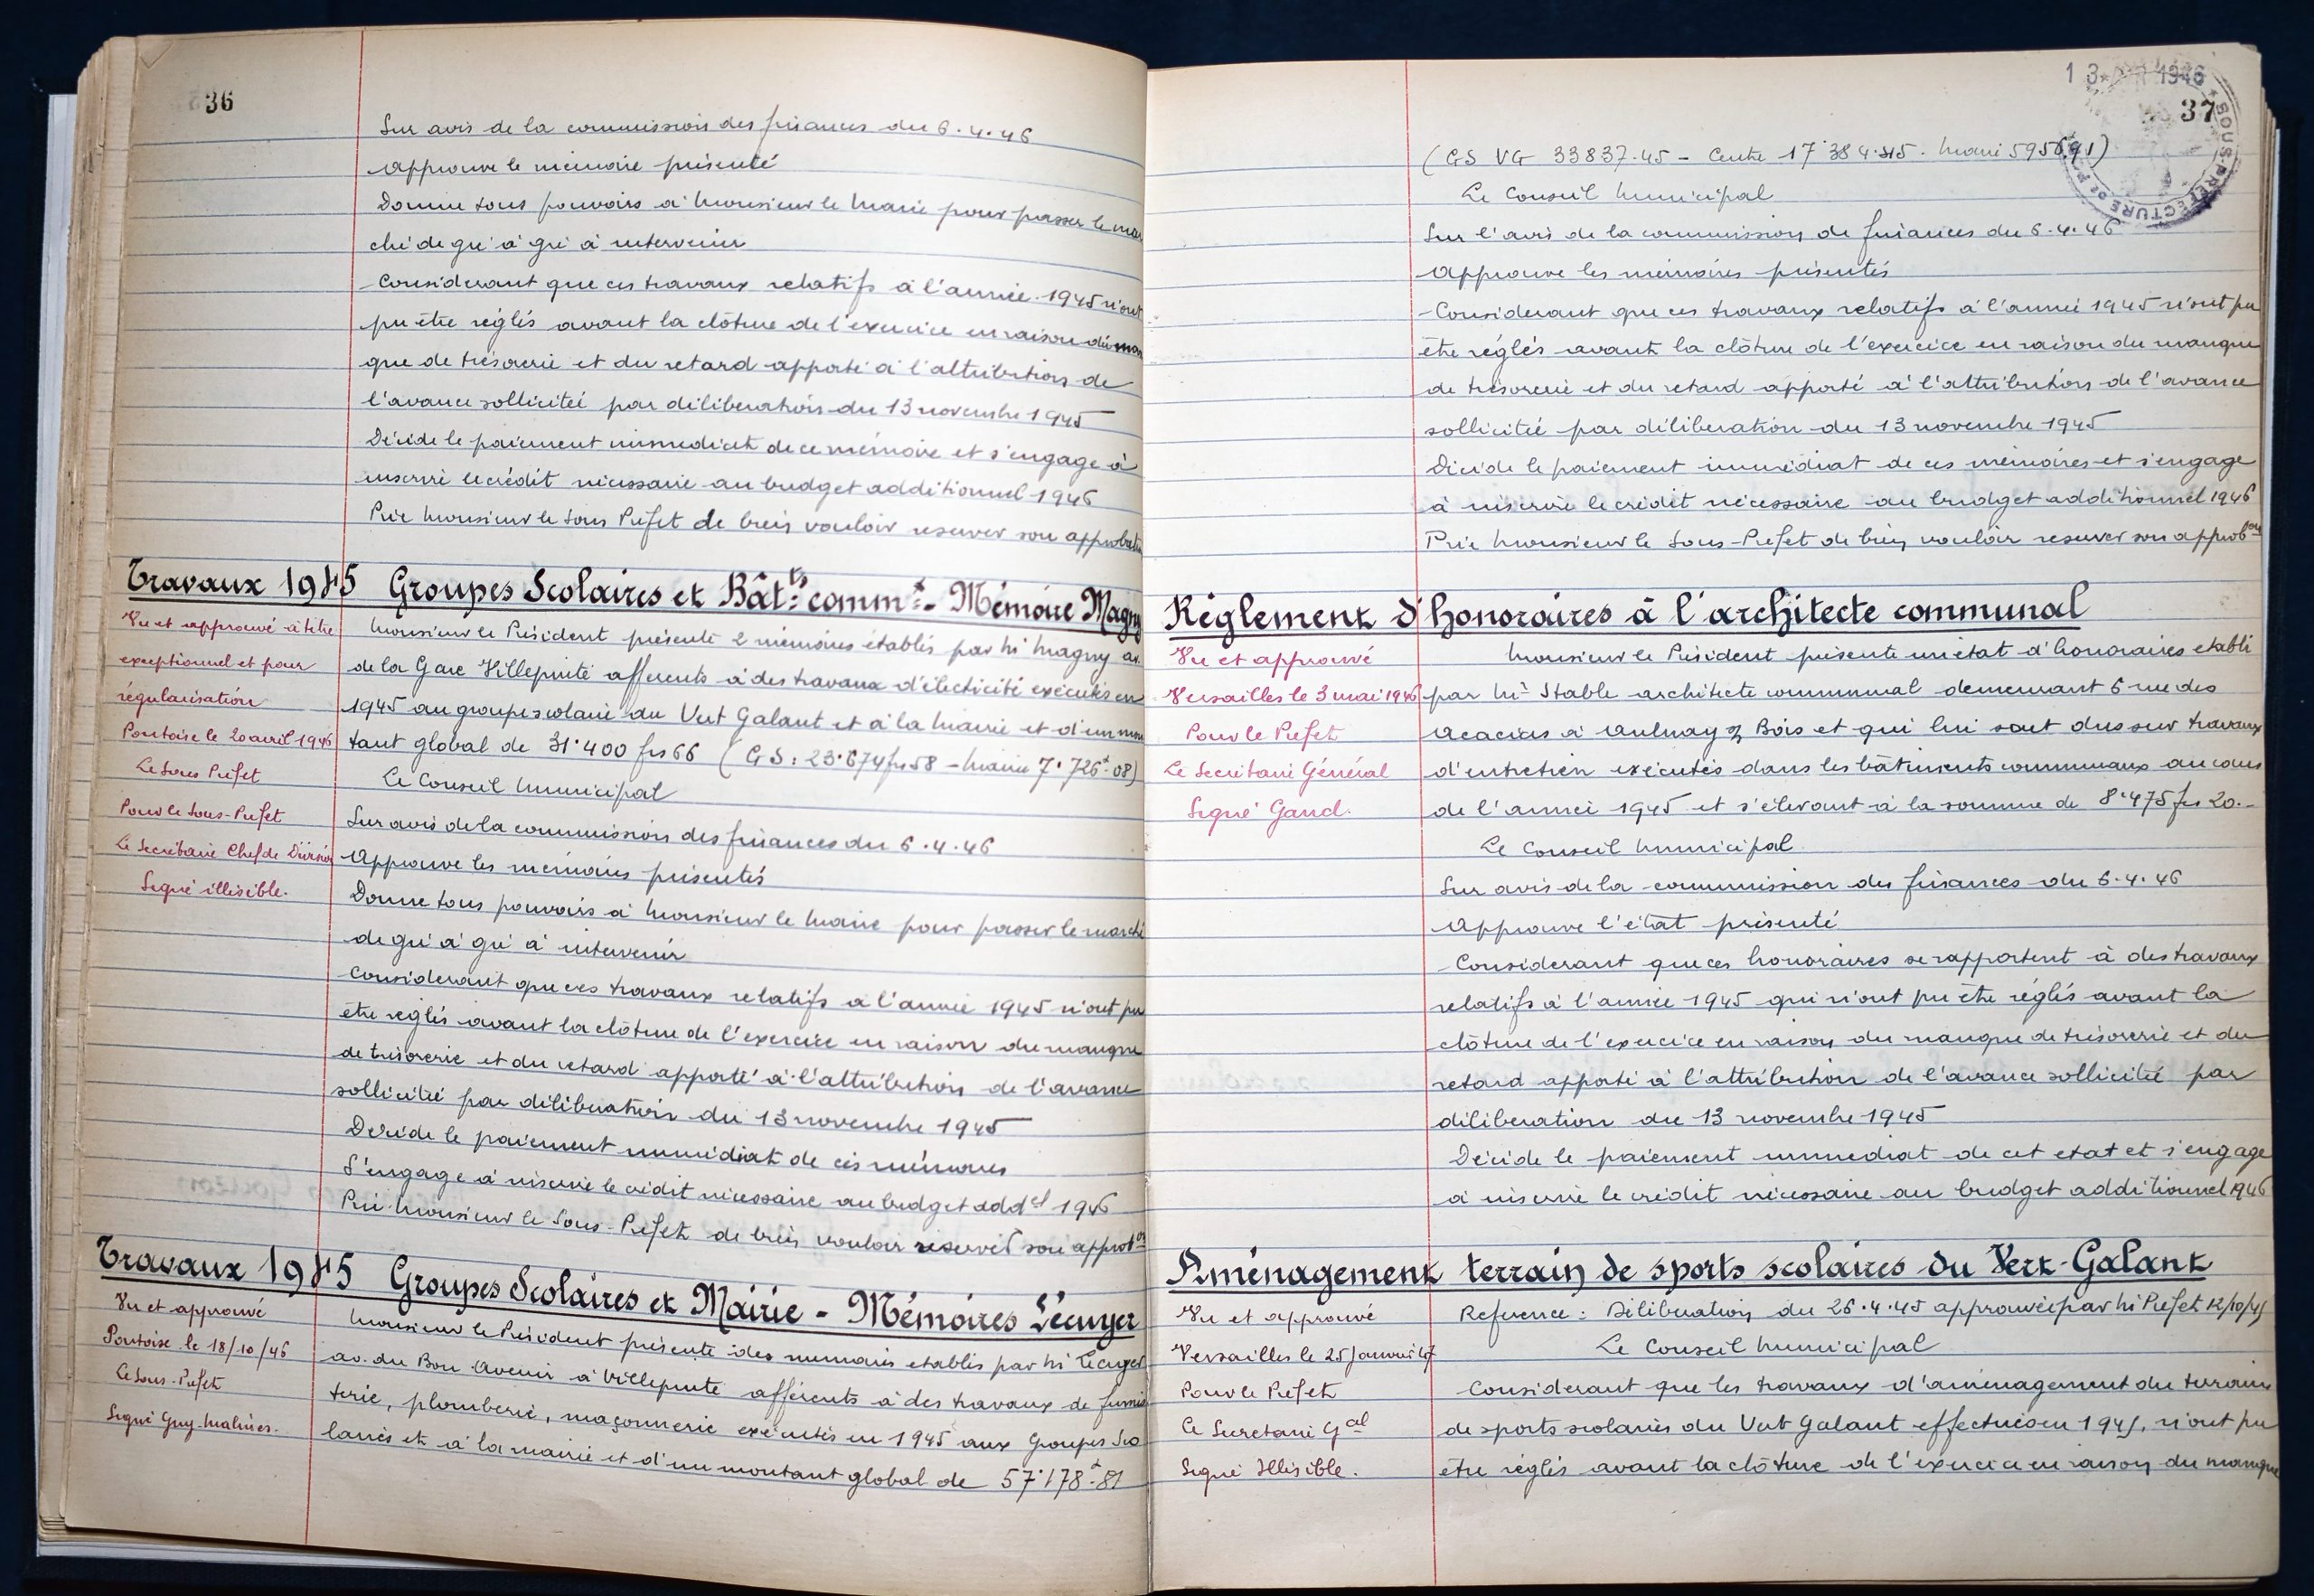 36
Sur avis de la commission des finances du 6.4.46
Approuve le mémoire présenté
Donne tous pouvoirs à Monsieur le Maire pour passer le mar
ché de gré à gré à intervenir
Considerant que ces travaux relatifs à l'année 1945 n'ont
pu être réglés avant la clôture de l'exercice en raison du man
que de trésorerie et du retard apporté à l'attribution de
l'avance sollicitée par déliberation du 13 novembre 1945
Décide le paiement immediat de ce mémoire et s'engage à
inscrire le crédit nécessaire au budget additionnel 1946
Prie Monsieur le Sous Préfet de bien vouloir reserver son approbation
Travaux 1945 Groupes Scolaires et Bâtts comm. - Mémoire Magny
Vu et approuvé à titre
exceptionnel et pour
régularisation
Pontoise le 20 avril 1946
Le Sous Préfet
Pour le Sous-Préfet
Le Secrétaire Chef de Division
Signé illisible.
Monsieur le Président présente 2 mémoires établis par Mr Magny av.
de la Gare Villepinte afferents à des travaux d'électicité exécutés en
1945 au groupe scolaire du Vert Galant et à la Mairie et d'un mon
tant global de 31.400 frs 66 (GS : 23.674 frs 58 - Mairie 7.726f.08)
Le Conseil Municipal
Sur avis de la commission des finances du 6.4.46
Approuve les mémoires présentés
Donne tous pouvoirs à Monsieur le Maire pour passer le marché
de gré à gré à intervenir
Considerant que ces travaux relatifs à l'année 1945 n'ont pu
être réglés avant la clôture de l'exercice en raison du manque
de trésorerie et du retard apporté à l'attribution de l'avance
sollicitée par déliberation du 13 novembre 1945
Décide le paiement immédiat de ces mémoires
S'engage à inscrire le crédit nécessaire au budget addel 1946
Prie Monsieur le Sous-Préfet de bien vouloir réserver son approbon
Travaux 1945 Groupes Scolaires et Mairie - Mémoires Lécuyer
Vu et approuvé
Pontoise le 18/10/46
Le Sous-Préfet
Signé Guy-Malines.
Monsieur le Président présente des memoires etablis par Mr Lécuyer
av. du Bon Avenir à Villepinte afférents à des travaux de fumis
terie, plomberie, maçonnerie exécutés en 1945 aux Groupes Sco
laires et à la mairie et d'un montant global de 57.178f.81
13 1946
37
SOUS-PRÉFECTURE DE
(GS VG 33837.45 - Centre 17.384.45. Mairie 5956.91)
Le Conseil Municipal
Sur l'avis de la commission de finances du 6.4.46
Approuve les mémoires présentés
Considerant que ces travaux relatifs à l'année 1945 n'ont pu
être réglés avant la clôture de l'exercice en raison du manque
de trésorerie et du retard apporté à l'attribution de l'avance
sollicitée par déliberation du 13 novembre 1945
Décide le paiement immédiat de ces mémoires et s'engage
à inscrire le crédit nécessaire au budget additionnel 1946
Prie Monsieur le Sous-Préfet de bien vouloir reserver son approbon
Réglement d'honoraires à l'architecte communal
Vu et approuvé
Versailles le 3 mai 1946
Pour le Préfet
Le Secrétaire Général
Signé Gand.
Monsieur le Président présente un état d'honoraires etabli
par Mr Stable architecte communal demeurant 6 rue des
Acacias à Aulnay s/ Bois et qui lui sont dus sur travaux
d'entretien exécutés dans les bâtiments communaux au cours
de l'année 1945 et s'élevant à la somme de 8.475 frs 20.-
Le Conseil Municipal
Sur avis de la commission des finances du 6.4.46
Approuve l'état présenté
Considerant que ces honoraires se rapportent à des travaux
relatifs à l'année 1945 qui n'ont pu être réglés avant la
clôture de l'exercice en raison du manque de trésorerie et du
retard apporté à l'attribution de l'avance sollicitée par
déliberation du 13 novembre 1945
Décide le paiement immediat de cet etat et s'engage
à inscrire le crédit nécessaire au budget additionnel 1946
Aménagement terrain de sports scolaires du Vert-Galant
Vu et approuvé
Versailles le 25 Janvier 47
Pour le Préfet
Le Secretaire Gal
Signé Illisible.
Reference : Déliberation du 26.4.45 approuvée par Mr Préfet 12/10/45
Le Conseil Municipal
Considerant que les travaux d'aménagement du terrain
de sports scolaires du Vert Galant effectués en 1945, n'ont pu
être réglés avant la clôture de l'exercice en raison du manque